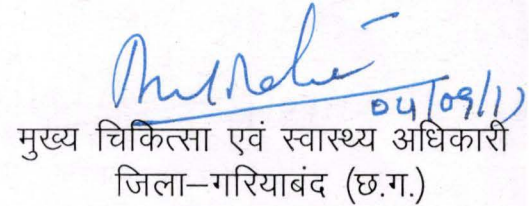 04/09/17
मुख्य चिकित्सा एवं स्वास्थ्य अधिकारी
जिला–गरियाबंद (छ.ग.)